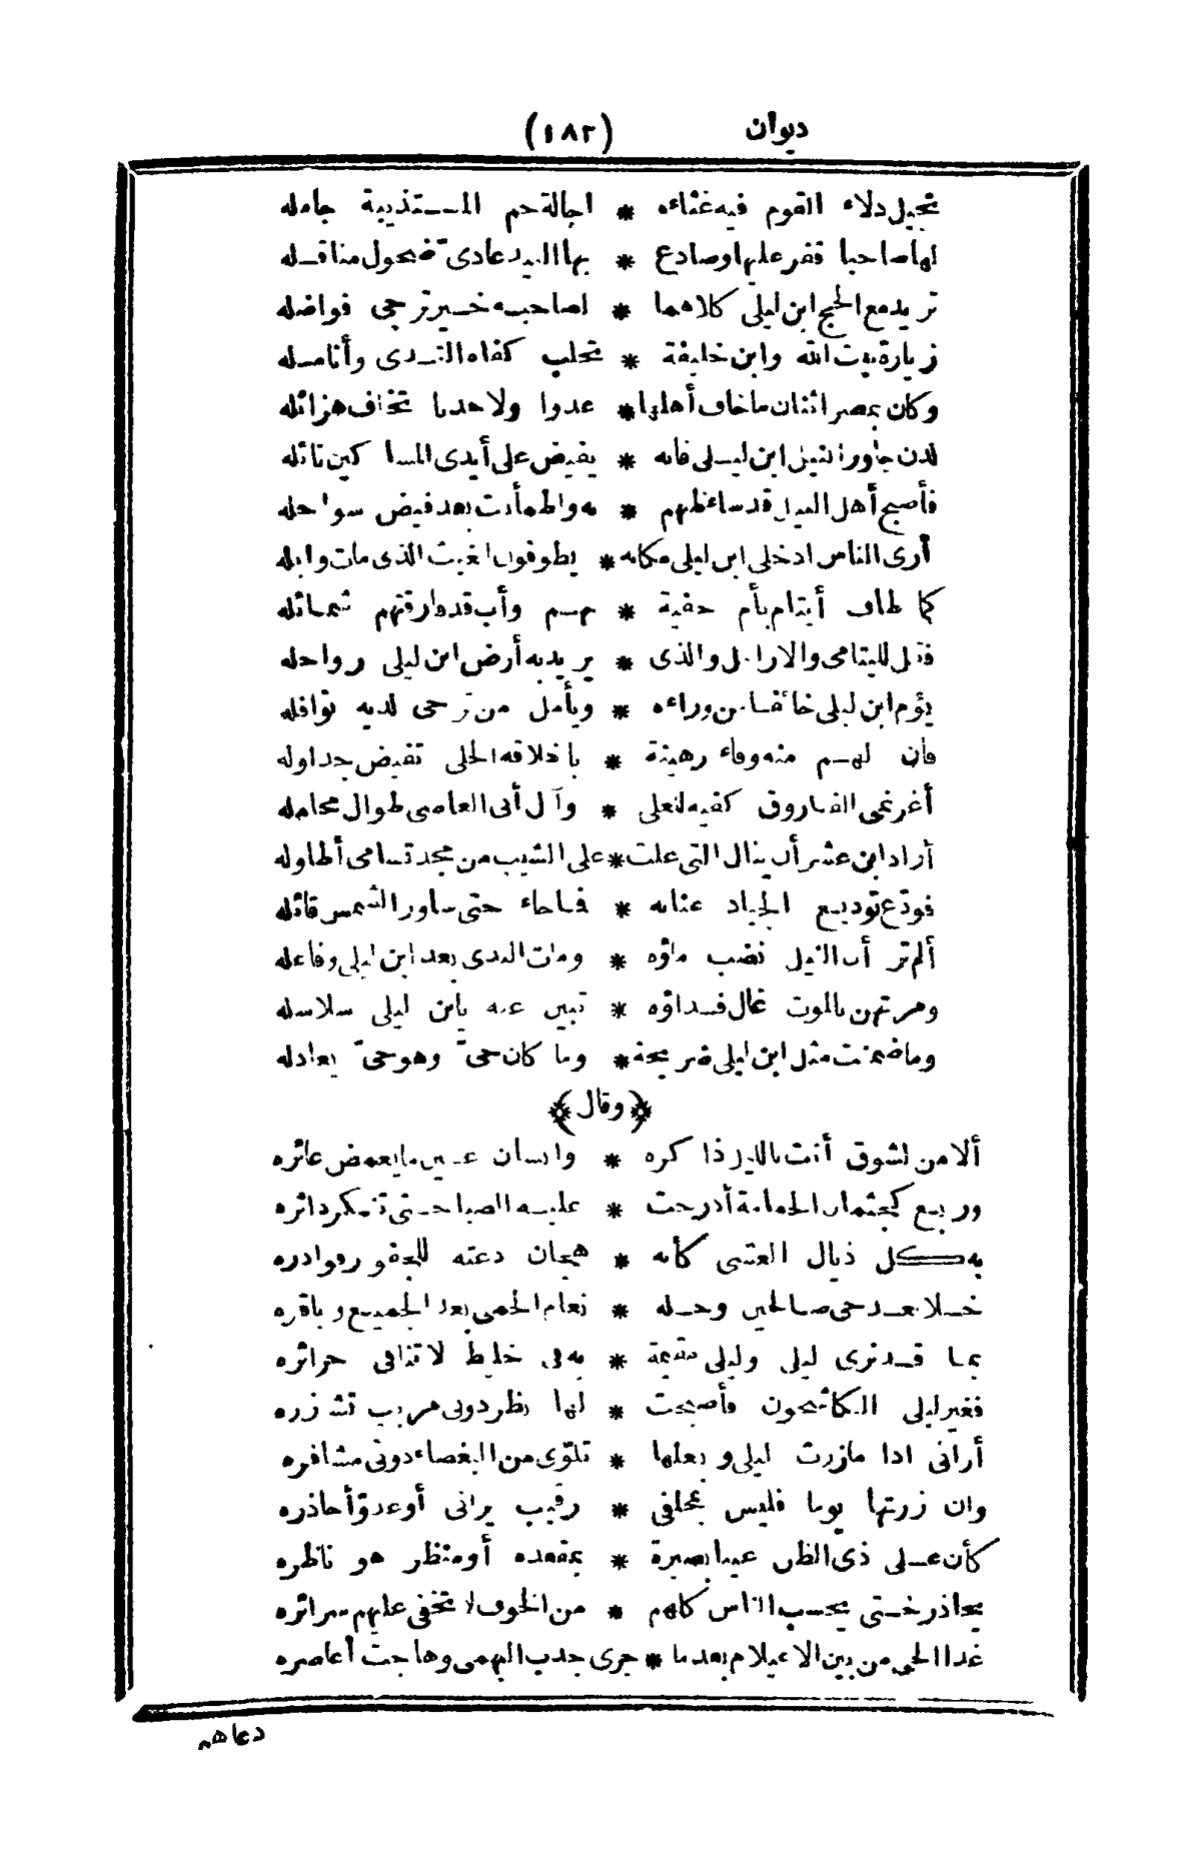 ديوان (١٨٢)
تجيل دلاء القوم فيه غثاءه * اجالة حم المستذيبة جامله
لها صاحبا فقر عليها وصادع * بها البيد عادىّ ضحول مناقله
تريد مع الحج ابن ليلى كلاهما * لصاحبه خير ترجى فواضله
زيارة بيت الله وابن خليفة * تحلب كفاه الندى وأنامله
وكان بمصر اثنان ما خاف أهلها * عدوا ولا جدبا تخاف هزائله
لدن جاور النيل ابن ليلى فانه * يفيض على أيدى المساكين نائله
فأصبح أهل النيل قد ساء ظنهم * به واطمأنت بعد فيض سواحله
أرى الناس اذ خلى ابن ليلى مكانه * يطوفون للغيث الذى مات وابله
كما طاف أيتام بأم حفية * بهم وأب قد فارقتهم شمائله
فقل لليتامى والارامل والذى * يريد به أرض ابن ليلى رواحله
يؤم ابن ليلى خائفا من وراءه * ويأمل من ترجى لديه نوافله
فان لهم منه وفاء رهينة * باخلاقه الجلى تفيض جداوله
أغر نمى الفاروق كفيه للعلى * وآل أبى العاصى طوال محامله
أراد ابن عشر أن ينال التى علت * على الشيب من مجد تسامى أطاوله
فودّع توديع الجياد عنانه * فما جاء حتى ساور الشمس قائله
ألم تر أن النيل نضب ماؤه * ومات الندى بعد ابن ليلى وفاعله
ومرتهن بالموت غال فداؤه * تبين عنه يابن ليلى سلاسله
وما ضمنت مثل ابن ليلى ضريحة * وما كان حىّ وهو حىّ يعادله
﴿وقال﴾
ألا من لشوق أنت بالليل ذاكره * وانسان عين ما يغمض عائره
وربع كجثمان الحمامة أدرجت * عليه الصبا حتى تنكر داثره
به كل ذيال العشى كأنه * هجان دعته للجفور فوادره
خلا بعد حى صالحين وحله * نعام الحمى بعد الجميع وباقره
بما قد نرى ليلى وليلى مقيمة * به فى خليط لا تناهى حرائره
فغير ليلى الكاشحون فأصبحت * لها نظر دونى مريب تشازره
أرانى اذا ما زرت ليلى وبعلها * تلوّى من البغضاء دونى مشافره
وان زرتها يوما فليس بمخلفى * رقيب يرانى أو عدوّ أحاذره
كأن على ذى الظن عينا بصيرة * بمقعده أو منظر هو ناظره
يحاذر حتى يحسب الناس كلهم * من الخوف لا تخفى عليهم سرائره
غدا الحى من بين الاعيلام بعدما * جرى جدب البهمى وهاجت أعاصره
دعاهم